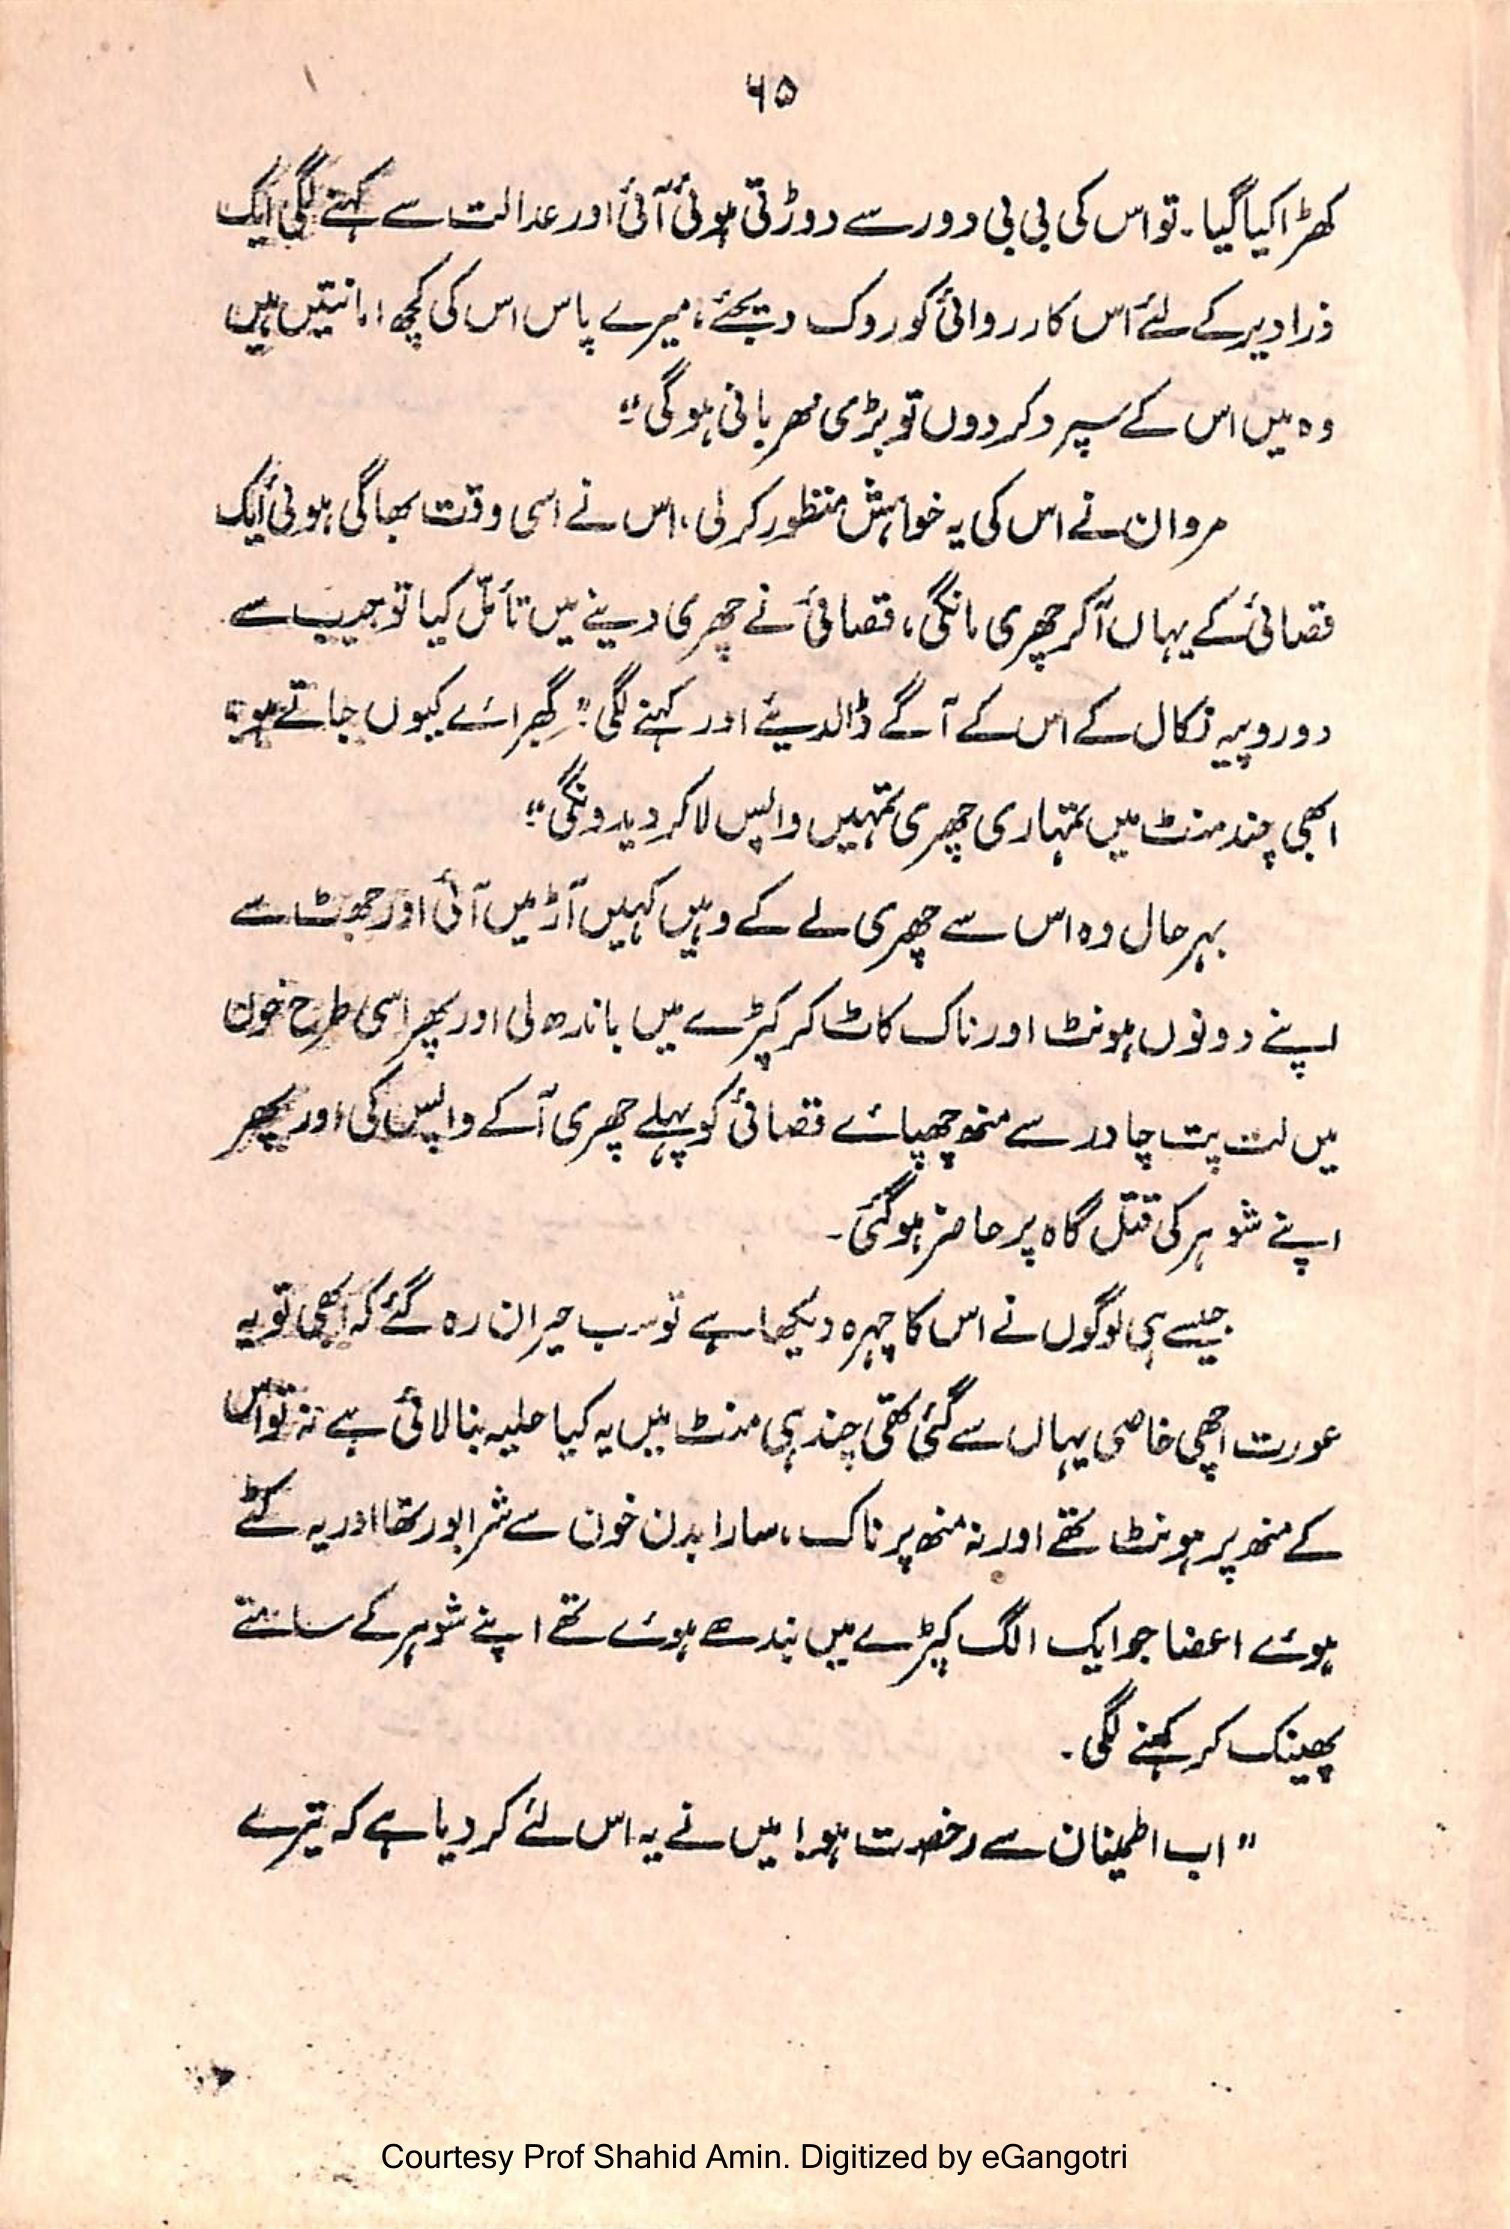 ۶۵
کھڑا کیا گیا۔ تو اس کی بی بی دور سے دوڑتی ہوئی آئی اور عدالت سے کہنے لگی ایک
ذرا دیر کے لئے اس کارروائی کو روک دیجئے، میرے پاس اس کی کچھ امانتیں ہیں
وہ میں اس کے سپرد کردوں تو بڑی مہربانی ہوگی"
مروان نے اس کی یہ خواہش منظور کرلی، اس نے اسی وقت بھاگی ہوئی ایک
قصائی کے یہاں آکر چھری مانگی، قصائی نے چھری دینے میں تأمّل کیا تو جیب سے
دو روپیہ نکال کے اس کے آگے ڈالدیئے اور کہنے لگی" گھبرائے کیوں جاتے ہو
ابھی چند منٹ میں تمہاری چھری تمہیں واپس لاکر دیدونگی"
بہرحال وہ اس سے چھری لے کے وہیں کہیں آڑ میں آئی اور جھٹ سے
اپنے دونوں ہونٹ اور ناک کاٹ کر کپڑے میں باندھ لی اور پھر اسی طرح خون
میں لت پت چادر سے منھ چھپائے قصائی کو پہلے چھری آکے واپس کی اور پھر
اپنے شوہر کی قتل گاہ پر حاضر ہوگئی۔
جیسے ہی لوگوں نے اس کا چہرہ دیکھا ہے تو سب حیران رہ گئے کہ ابھی تو یہ
عورت اچھی خاصی یہاں سے گئی تھی چند ہی منٹ میں یہ کیا حلیہ بنا لائی ہے نہ تو اس
کے منھ پر ہونٹ تھے اور نہ منھ پر ناک، سارا بدن خون سے شرابور تھا اور یہ کٹے
ہوئے اعضا جو ایک الگ کپڑے میں بندھے ہوئے تھے اپنے شوہر کے سامنے
پھینک کر کہنے لگی۔
"اب اطمینان سے رخصت ہو! میں نے یہ اس لئے کر دیا ہے کہ تیرے
Courtesy Prof Shahid Amin. Digitized by eGangotri